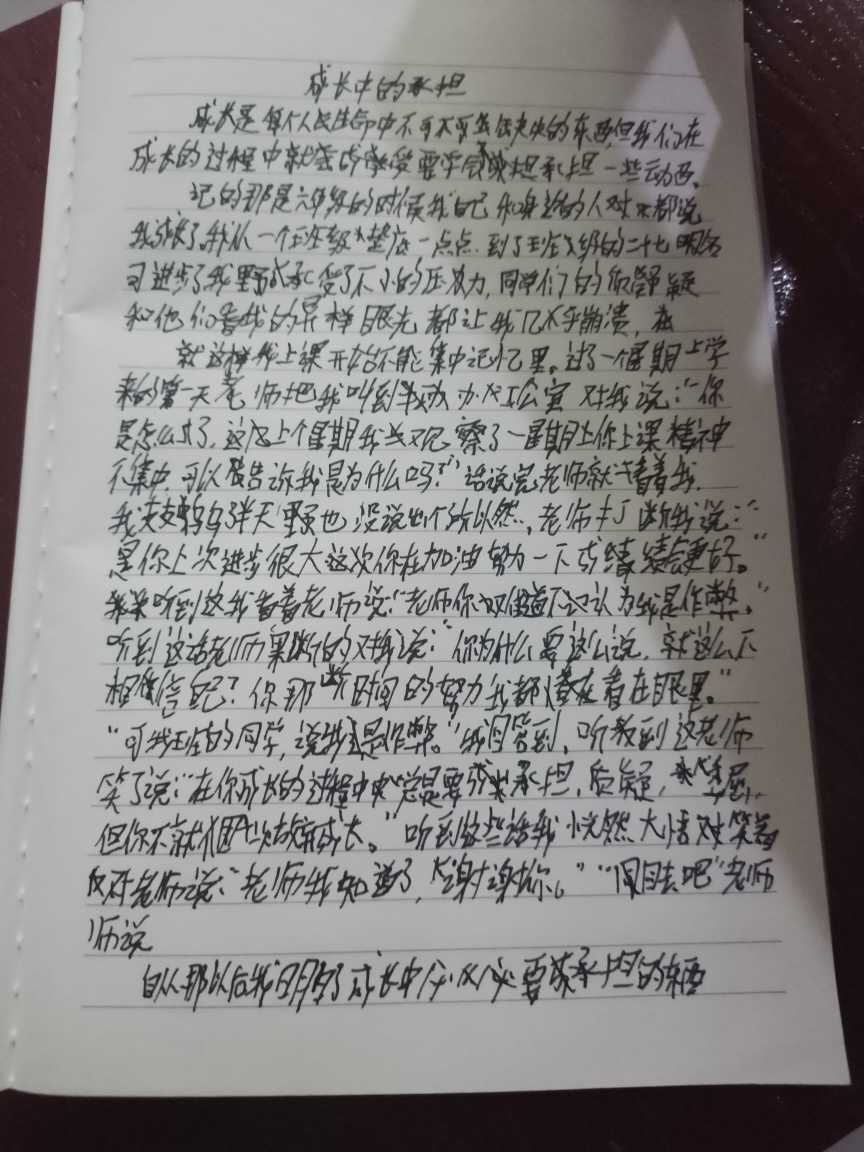 成长中的承担
成长是每个人生命中不可不可缺失的东西,但我们在
成长的过程中就会要学会承担一些东西。
记的那是六年级的时候我自己和身边的人都说
我成长了,我从一个班级垫底一点点到了班级的二十七名
可进步了我承受了不小的压力,同学们的质疑
和他们看我的异样眼光都让我几乎崩溃,在
就这样我上课开始不能集中记忆里。过了一个星期上学
来的第一天老师把我叫到办公室对我说:“你
是怎么了,这上个星期我观察了一星期上你上课精神
不集中,可以告诉我是为什么吗?”话说完老师就看着我,
我支支吾吾半天也没说出个所以然,老师打断我说:“
是你上次进步很大这次你在加油努力一下成绩会更好。”
听到这我看着老师说:“老师你难道不认为我是作弊。”
听到这话老师果断的对我说:“你为什么要这么说,就这么不
相信自己?你那些时间的努力我都看在眼里。”
“可我班的同学,说我是作弊。”我回答到,听到这老师
笑了说:“在你成长的过程中总是要承担,质疑,
但你不就成长。”听到这些话我恍然大悟笑着
对老师说:“老师我知道了,谢谢你。”“回去吧”老师
师说
自从那以后我明白了成长中必要承担的东西